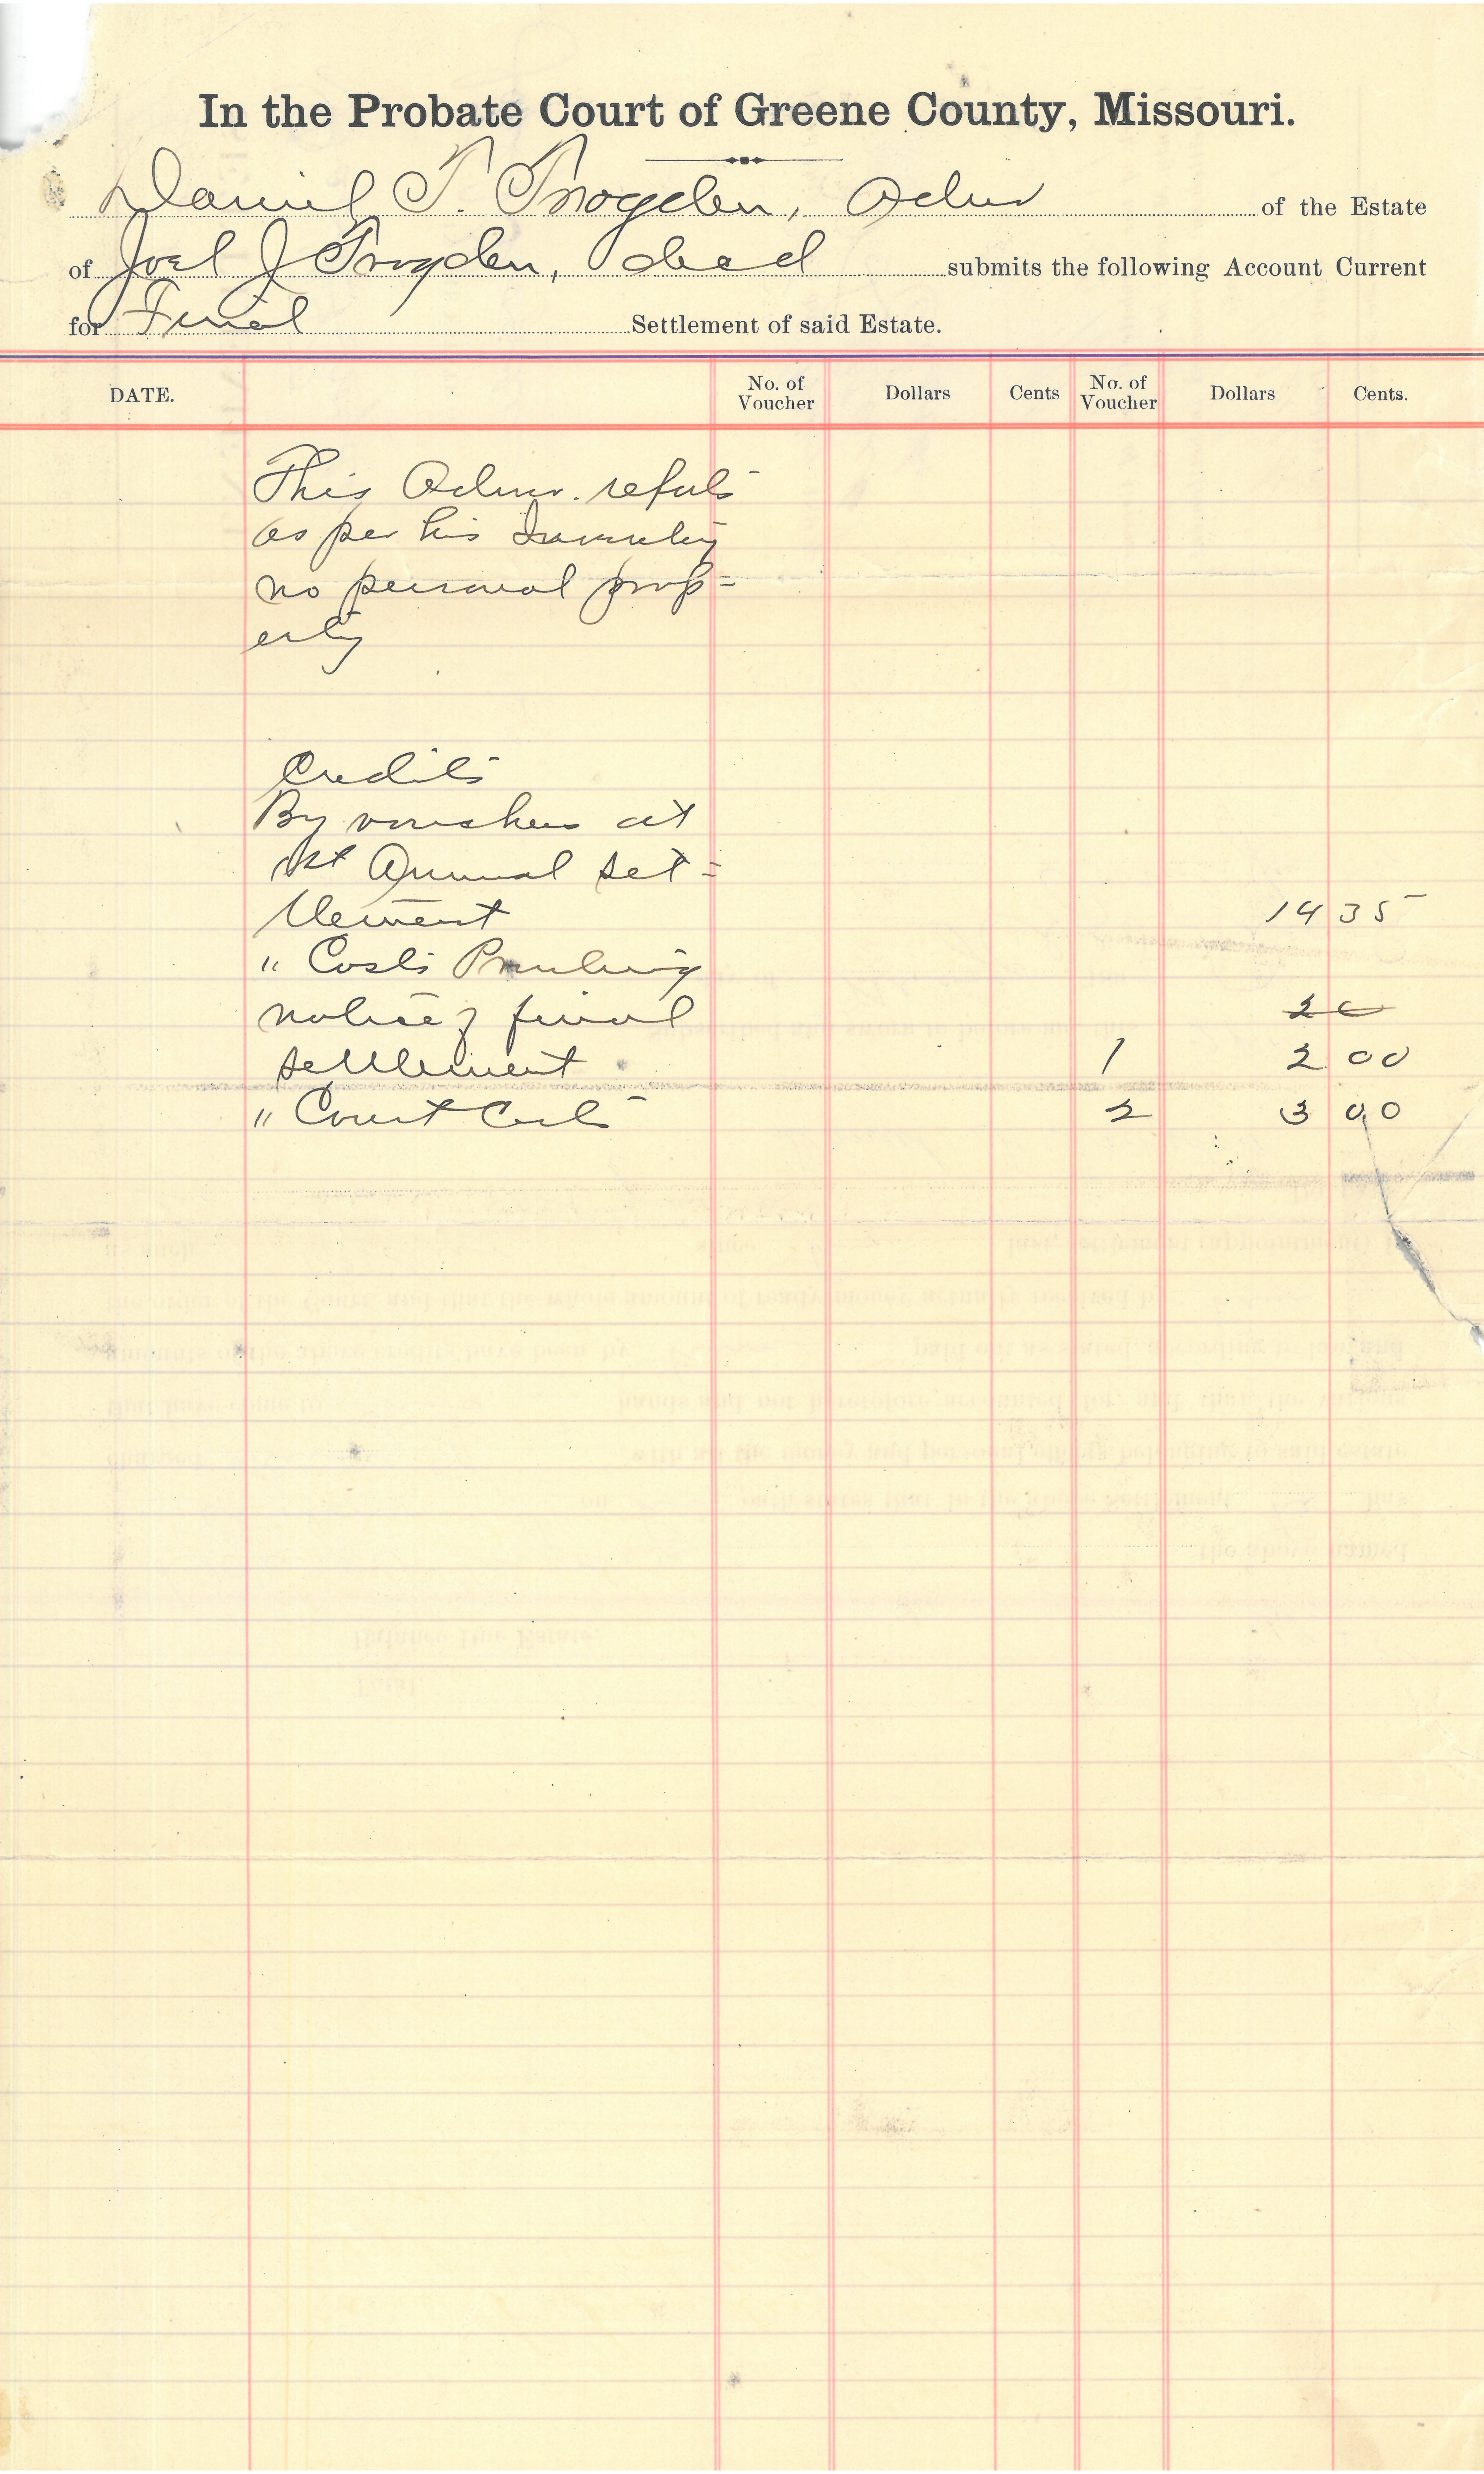 In the Probate Court of Greene County, Missouri.
Daniel T. Trogden, Admr of the Estate
of Joel J Trogden, decd submits the following Account Current
for Final Settlement of said Estate.
DATE. No. of Voucher Dollars Cents No. of Voucher Dollars Cents.
This Admr. reports
as per his Inventory
no personal prop=
erty
Credits
By vouchers at
1st Annual set=
tlement 14 35
" Costs Printing
notice of final 2
settlement 1 2 00
" Court Costs 2 3 00